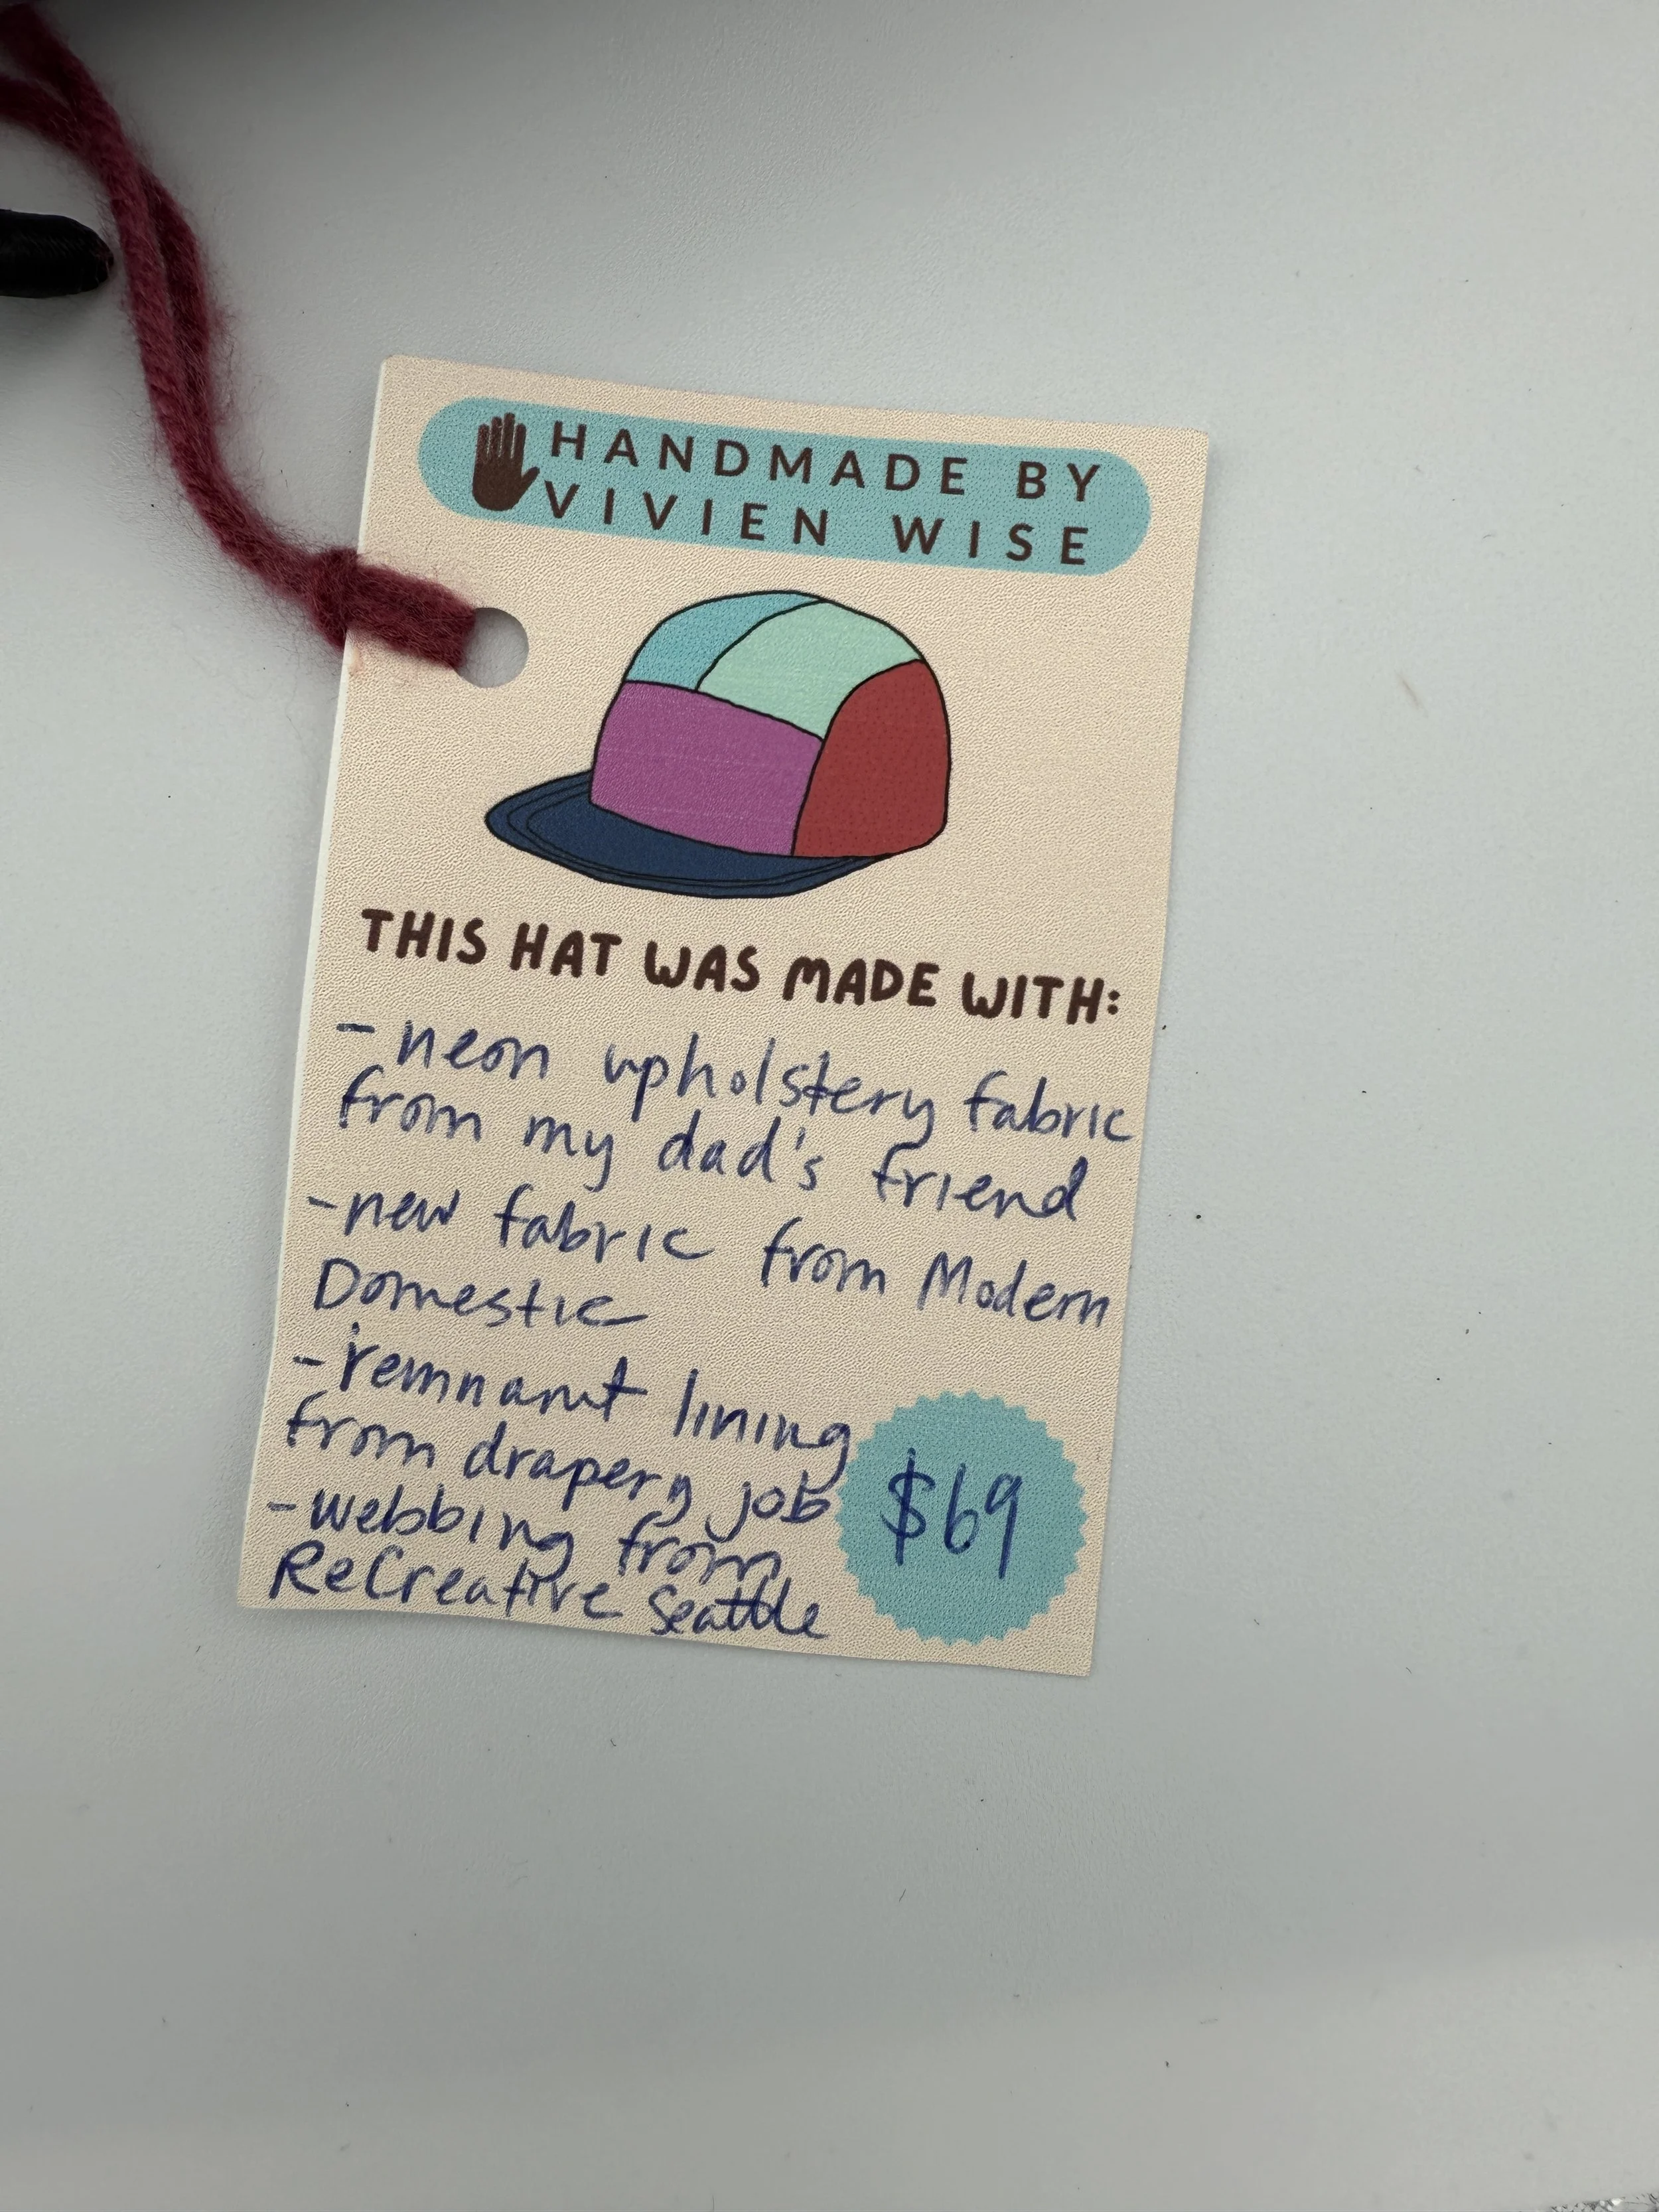 HANDMADE BY
VIVIEN WISE
THIS HAT WAS MADE WITH:
- neon upholstery fabric
from my dad's friend
- new fabric from Modern
Domestic
- remnant lining
from drapery job
- webbing from
ReCreative Seattle
$69